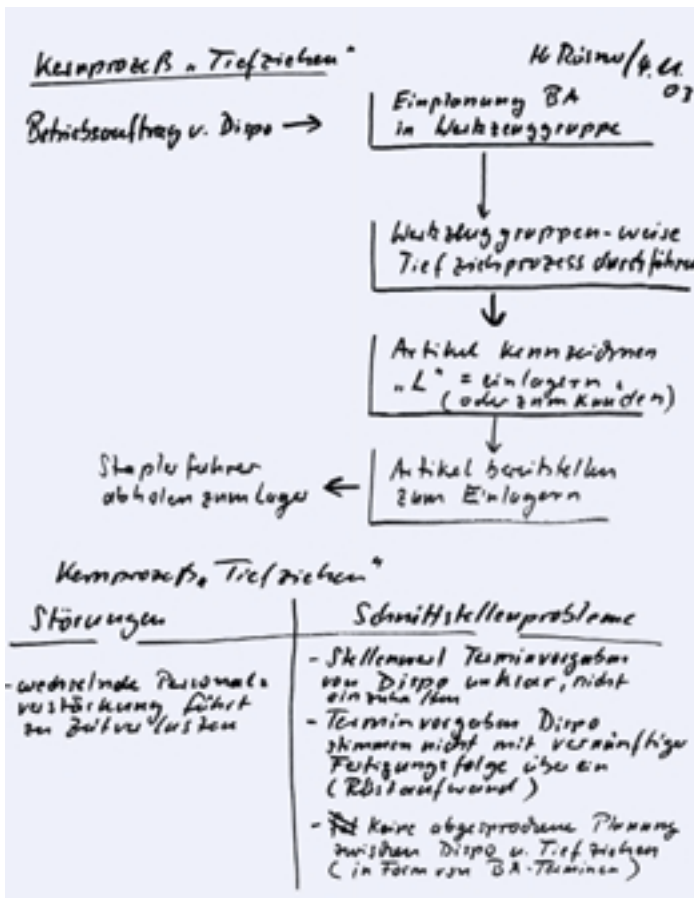 Kernprozeß „Tiefziehen"
H. Rösner/4.11.
03
Betriebsauftrag v. Dispo →
Einplanung BA
in Werkzeuggruppe
Werkzeuggruppen-weise
Tiefziehprozess durchführen
Artikel kennzeichnen
„L" = einlagern
(oder zum Kunden)
Artikel bereitstellen
zum Einlagern
Staplerfahrer
abholen zum Lager ←
Kernprozeß „Tiefziehen"
Störungen
- wechselnde Personal-
verstärkung führt
zu Zeitverlusten
Schnittstellenprobleme
- Stellenwert Terminvorgaben
von Dispo unklar, nicht
einzuhalten
- Terminvorgaben Dispo
stimmen nicht mit vernünftiger
Fertigungsfolge überein
(Rüstaufwand)
- keine abgesprochene Planung
zwischen Dispo u. Tiefziehen
(in Form von BA-Terminen)